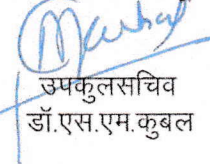 उपकुलसचिव
डॉ.एस.एम.कुबल